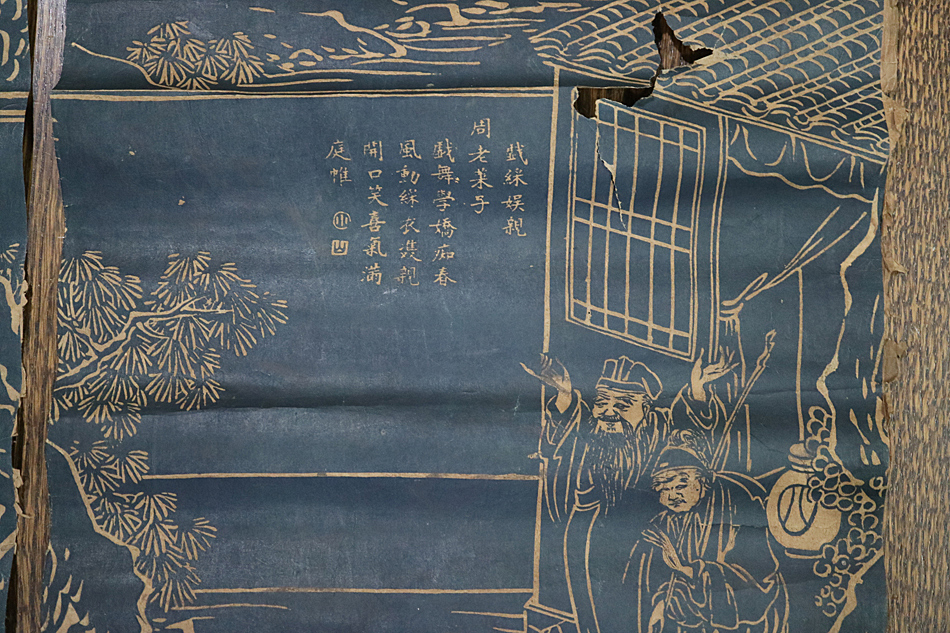 戱綵娱親
周老莱子
戱舞學嬌痴春
風動綵衣雙親
開口笑喜氣滿
庭帷